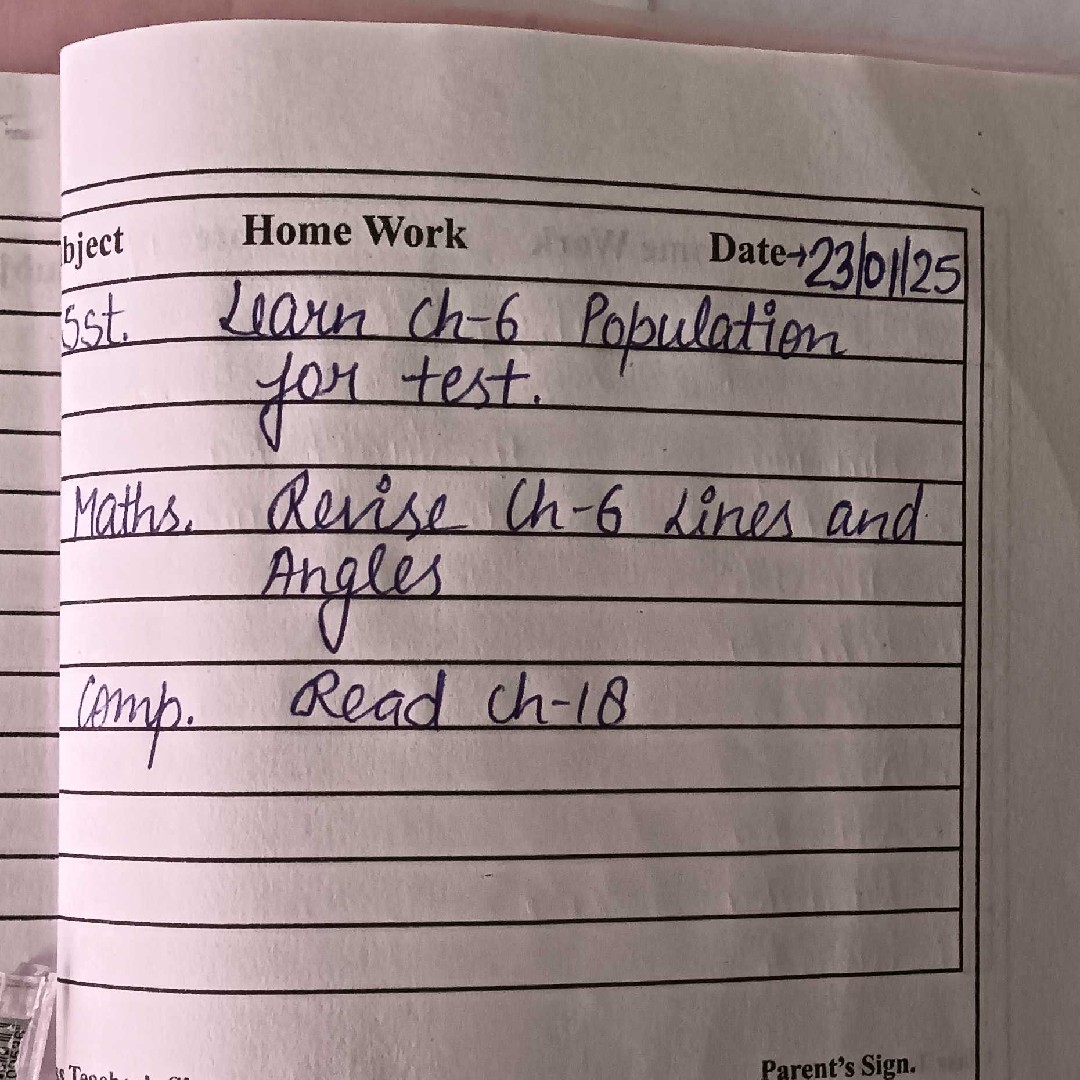 bject Home Work Date→23/01/25
Sst. Learn Ch-6 Population
for test.
Maths. Revise Ch-6 Lines and
Angles
Comp. Read Ch-18
Parent's Sign.